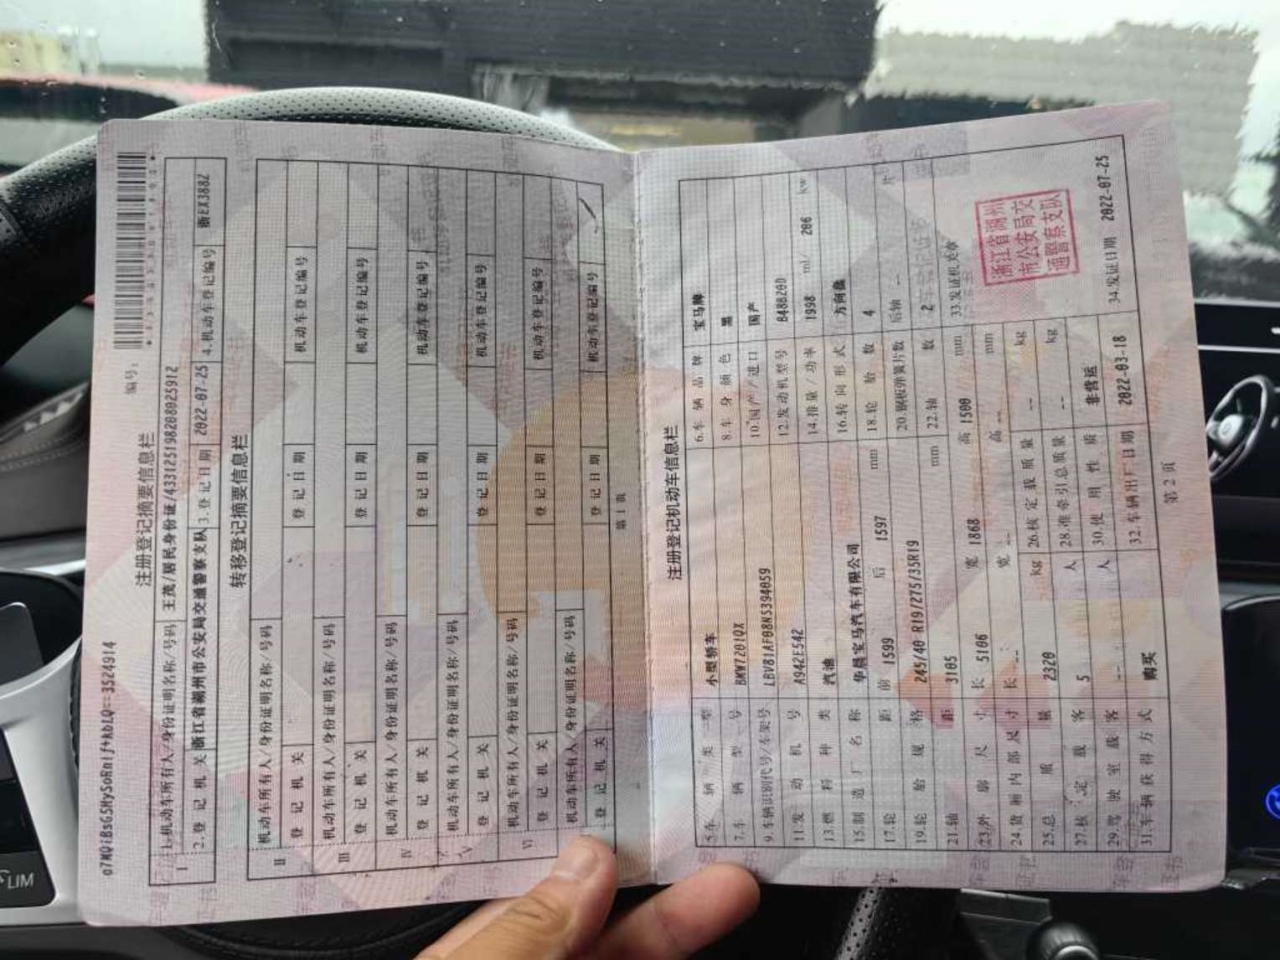 o7MQiBsGSHySoRnif+AbIQ==3524914
编号：
注册登记摘要信息栏
I 1.机动车所有人/身份证明名称/号码 王茂/居民身份证/433125198208025912
2.登记机关 浙江省湖州市公安局交通警察支队 3.登记日期 2022-07-25 4.机动车登记编号 浙EX388Z
转移登记摘要信息栏
II 机动车所有人/身份证明名称/号码
登记机关 登记日期 机动车登记编号
III 机动车所有人/身份证明名称/号码
登记机关 登记日期 机动车登记编号
IV 机动车所有人/身份证明名称/号码
登记机关 登记日期 机动车登记编号
V 机动车所有人/身份证明名称/号码
登记机关 登记日期 机动车登记编号
VI 机动车所有人/身份证明名称/号码
登记机关 登记日期 机动车登记编号
机动车所有人/身份证明名称/号码
登记机关 登记日期 机动车登记编号
第1页
注册登记机动车信息栏
5.车辆类型 小型轿车 6.车辆品牌 宝马牌
7.车辆型号 BMW7201QX 8.车身颜色 黑
9.车辆识别代号/车架号 LBV81AF08NS394059 10.国产/进口 国产
11.发动机号 A942E542 12.发动机型号 B48B20D
13.燃料种类 汽油 14.排量/功率 1998 ml/ 206 kw
15.制造厂名称 华晨宝马汽车有限公司 16.转向形式 方向盘
17.轮距 前 1599 后 1597 mm 18.轮胎数 4
19.轮胎规格 245/40 R19/275/35R19 20.钢板弹簧片数 后轴 -- 片
21.轴距 3105 mm 22.轴数 2
23.外廓尺寸 长 5106 宽 1868 高 1500 mm 33.发证机关章
24.货厢内部尺寸 长 -- 宽 -- 高 -- mm
25.总质量 2320 kg 26.核定载质量 -- kg
27.核定载客 5 人 28.准牵引总质量 -- kg
29.驾驶室载客 -- 人 30.使用性质 非营运
31.车辆获得方式 购买 32.车辆出厂日期 2022-03-18 34.发证日期 2022-07-25
浙江省湖州
市公安局交
通警察支队
第2页
LIM